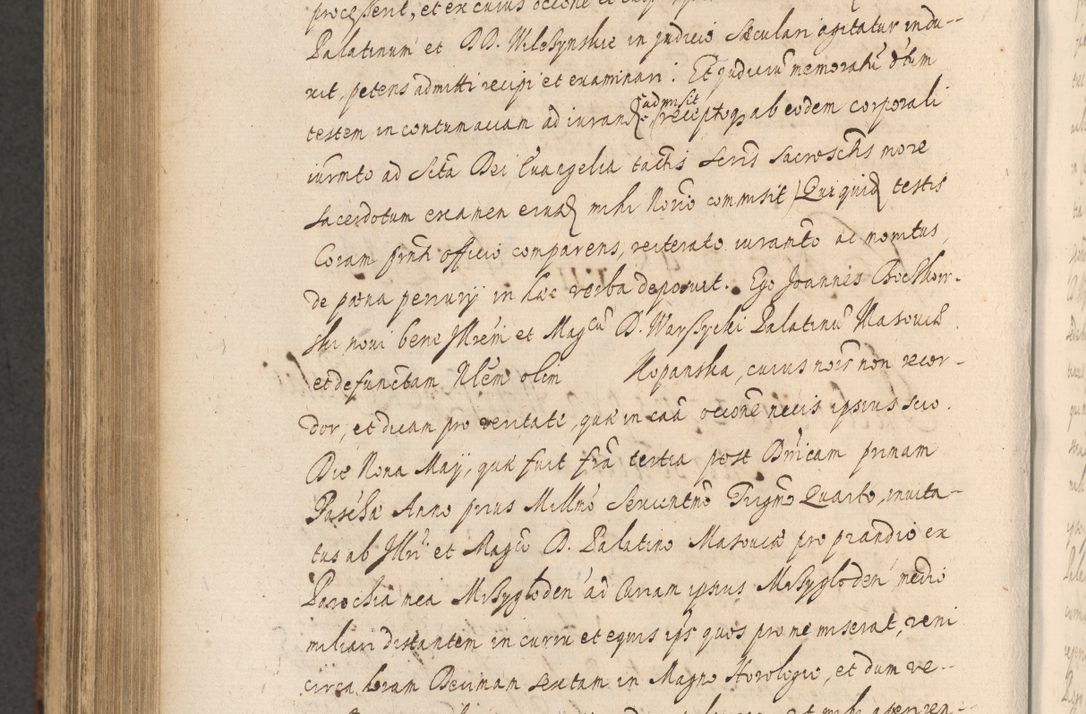 processerit, et ex cuius occōne et
Palatinum et DD. Wilksynskie in judicio sæculari agitatur indu--
xit, petens admitti recipi et examinari: Et judiciū memoratū dctum
testem in contumaciam ad iurand admisit receptoq ab eodem corporali
iurmto ad Scta Dei Euangelia tactis Scrid Sacrosctis more
sacerdotum examen eiusd mihi Norio commisit | Qui quid testis
Coram prnti officio comparens, reiterato iuramto ac monitus,
de pæna perrurij in hæc verba deposuit. Ego Joannes Bochkow-
ski noui bene Jllrem et Magcū D. Warssycki Palatinū Masouiæ
et defunctam Nlem olim Kopanska, cuius nois non recor-
dor, et dicam pro veritate, quæ in caā occōne necis ipsius scio.
Die Nona Maij, quæ fuit fria tertia post Dnicam primam
Paschæ Anno prius Millmo Sexcentmo Trigmo Quarto, inuita-
tus ab Jllri et Magco D. Palatino Masouiæ pro prandio ex
Parochia mea Mrsygloden ad Curiam ipsius Mrsyglodem medio
miliari distantem in curru et equis ips quos pro me miserat, veni
circa horam Decimam sextam in Magno Horologio, et dum ve--